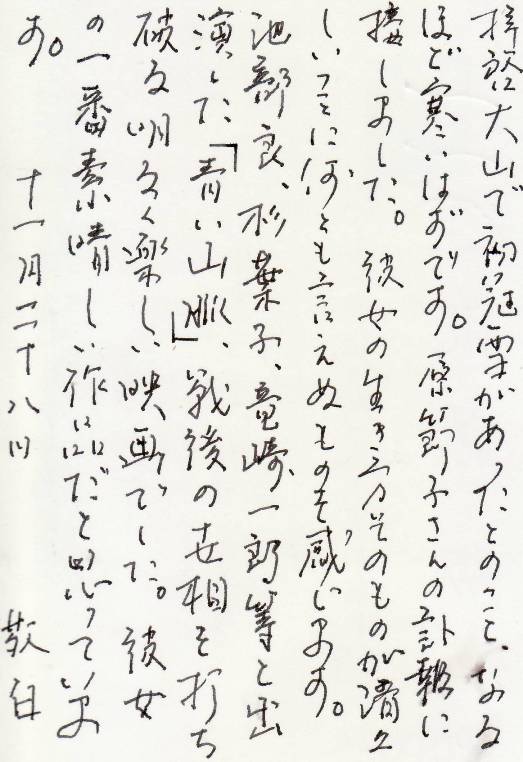 拝啓 大山で初冠雪があったとのこと、なる
ほど寒いはずです。原節子さんの訃報に
接しました。彼女の生き方そのものが清々
しいことに何とも言えぬものを感じます。
池部良、杉葉子、竜崎一郎等と出
演した「青い山脈」、戦後の世相を打ち
破る明るく楽しい映画でした。彼女
の一番素晴しい作品だと思っていま
す。
十一月二十八日 敬白